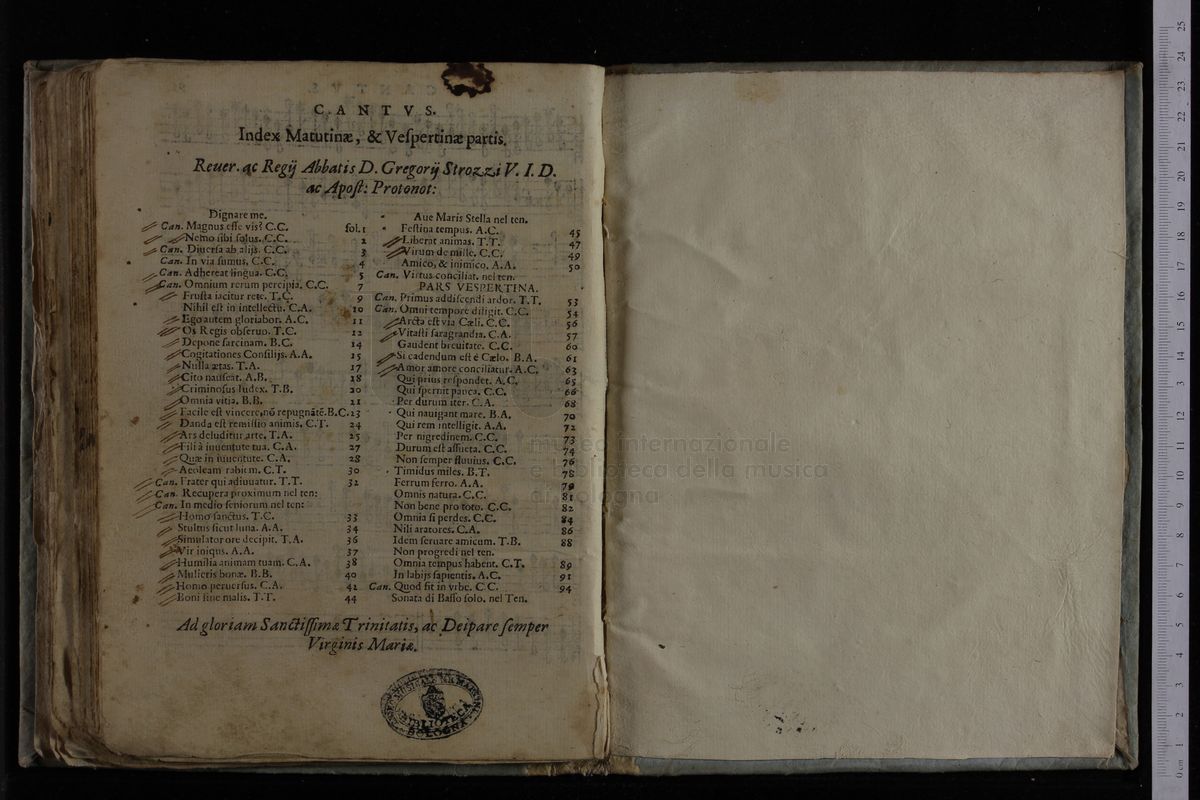 CANTVS.
Index Matutinæ, & Veſpertinæ partis.
Reuer. ac Regij Abbatis D. Gregorij Strozzi V. I. D.
ac Apoſt: Protonot:
Dignare me.
Can. Magnus eſſe vis? C.C. fol. 1
Nemo ſibi ſolus. C.C. 2
Can. Diuerſa ab alijs. C.C. 3
Can. In via ſumus. C.C. 4
Can. Adhereat lingua. C.C. 5
Can. Omnium rerum percipia. C.C. 7
Fruſta iacitur rete. T.C. 9
Nihil eſt in intellectu. C.A. 10
Ego autem gloriabor. A.C. 11
Os Regis obſeruo. T.C. 12
Depone ſarcinam. B.C. 14
Cogitationes Conſilijs. A.A. 15
Nulla ætas. T.A. 17
Cito nauſeat. A.B. 18
Criminoſus Iudex. T.B. 20
Omnia vitia. B.B. 21
Facile eſt vincere, nõ repugnãtē. B.C. 23
Danda eſt remiſſio animis. C.T. 24
Ars deluditur arte. T.A. 25
Fili à iuuentute tua. C.A. 27
Quæ in iuuentute. C.A. 28
Aeoleam rabiem. C.T. 30
Can. Frater qui adiuuatur. T.T. 32
Can. Recupera proximum nel ten:
Can. In medio ſeniorum nel ten:
Homo ſanctus. T.C. 33
Stultus ſicut luna. A.A. 34
Simulator ore decipit. T.A. 36
Vir iniqus. A.A. 37
Humilia animam tuam. C.A. 38
Mulieris bonæ. B.B. 40
Homo peruerſus. C.A. 42
Boni ſine malis. T.T. 44
Aue Maris Stella nel ten.
Feſtina tempus. A.C. 45
Liberat animas. T.T. 47
Virum de mille. C.C. 49
Amico, & inimico. A.A. 50
Can. Virtus conciliat. nel ten.
PARS VESPERTINA.
Can. Primus addiſcendi ardor. T.T. 53
Can. Omni tempore diligit. C.C. 54
Arcta eſt via Cæli. C.C. 56
Vitaſti faragrandia. C.A. 57
Gaudent breuitate. C.C. 60
Si cadendum eſt é Cælo. B.A. 61
Amor amore conciliatur. A.C. 63
Qui prius reſpondet. A.C. 65
Qui ſpernit pauca. C.C. 66
Per durum iter. C.A. 68
Qui nauigant mare. B.A. 70
Qui rem intelligit. A.A. 72
Per nigredinem. C.C. 73
Durum eſt aſſueta. C.C. 74
Non ſemper fluuius. C.C. 76
Timidus miles. B.T. 78
Ferrum ferro. A.A. 79
Omnis natura. C.C. 81
Non bene pro toto. C.C. 82
Omnia ſi perdes. C.C. 84
Nili aratores. C.A. 86
Idem ſeruare amicum. T.B. 88
Non progredi nel ten.
Omnia tempus habent. C.T. 89
In labijs ſapientis. A.C. 91
Can. Quod fit in vrbe. C.C. 94
Sonata di Baſſo ſolo. nel Ten.
Ad gloriam Sanctiſſimæ Trinitatis, ac Deipare ſemper
Virginis Mariæ.
BIBLIOTECA
BOLOGNA
museo internazionale
e biblioteca della musica
di bologna